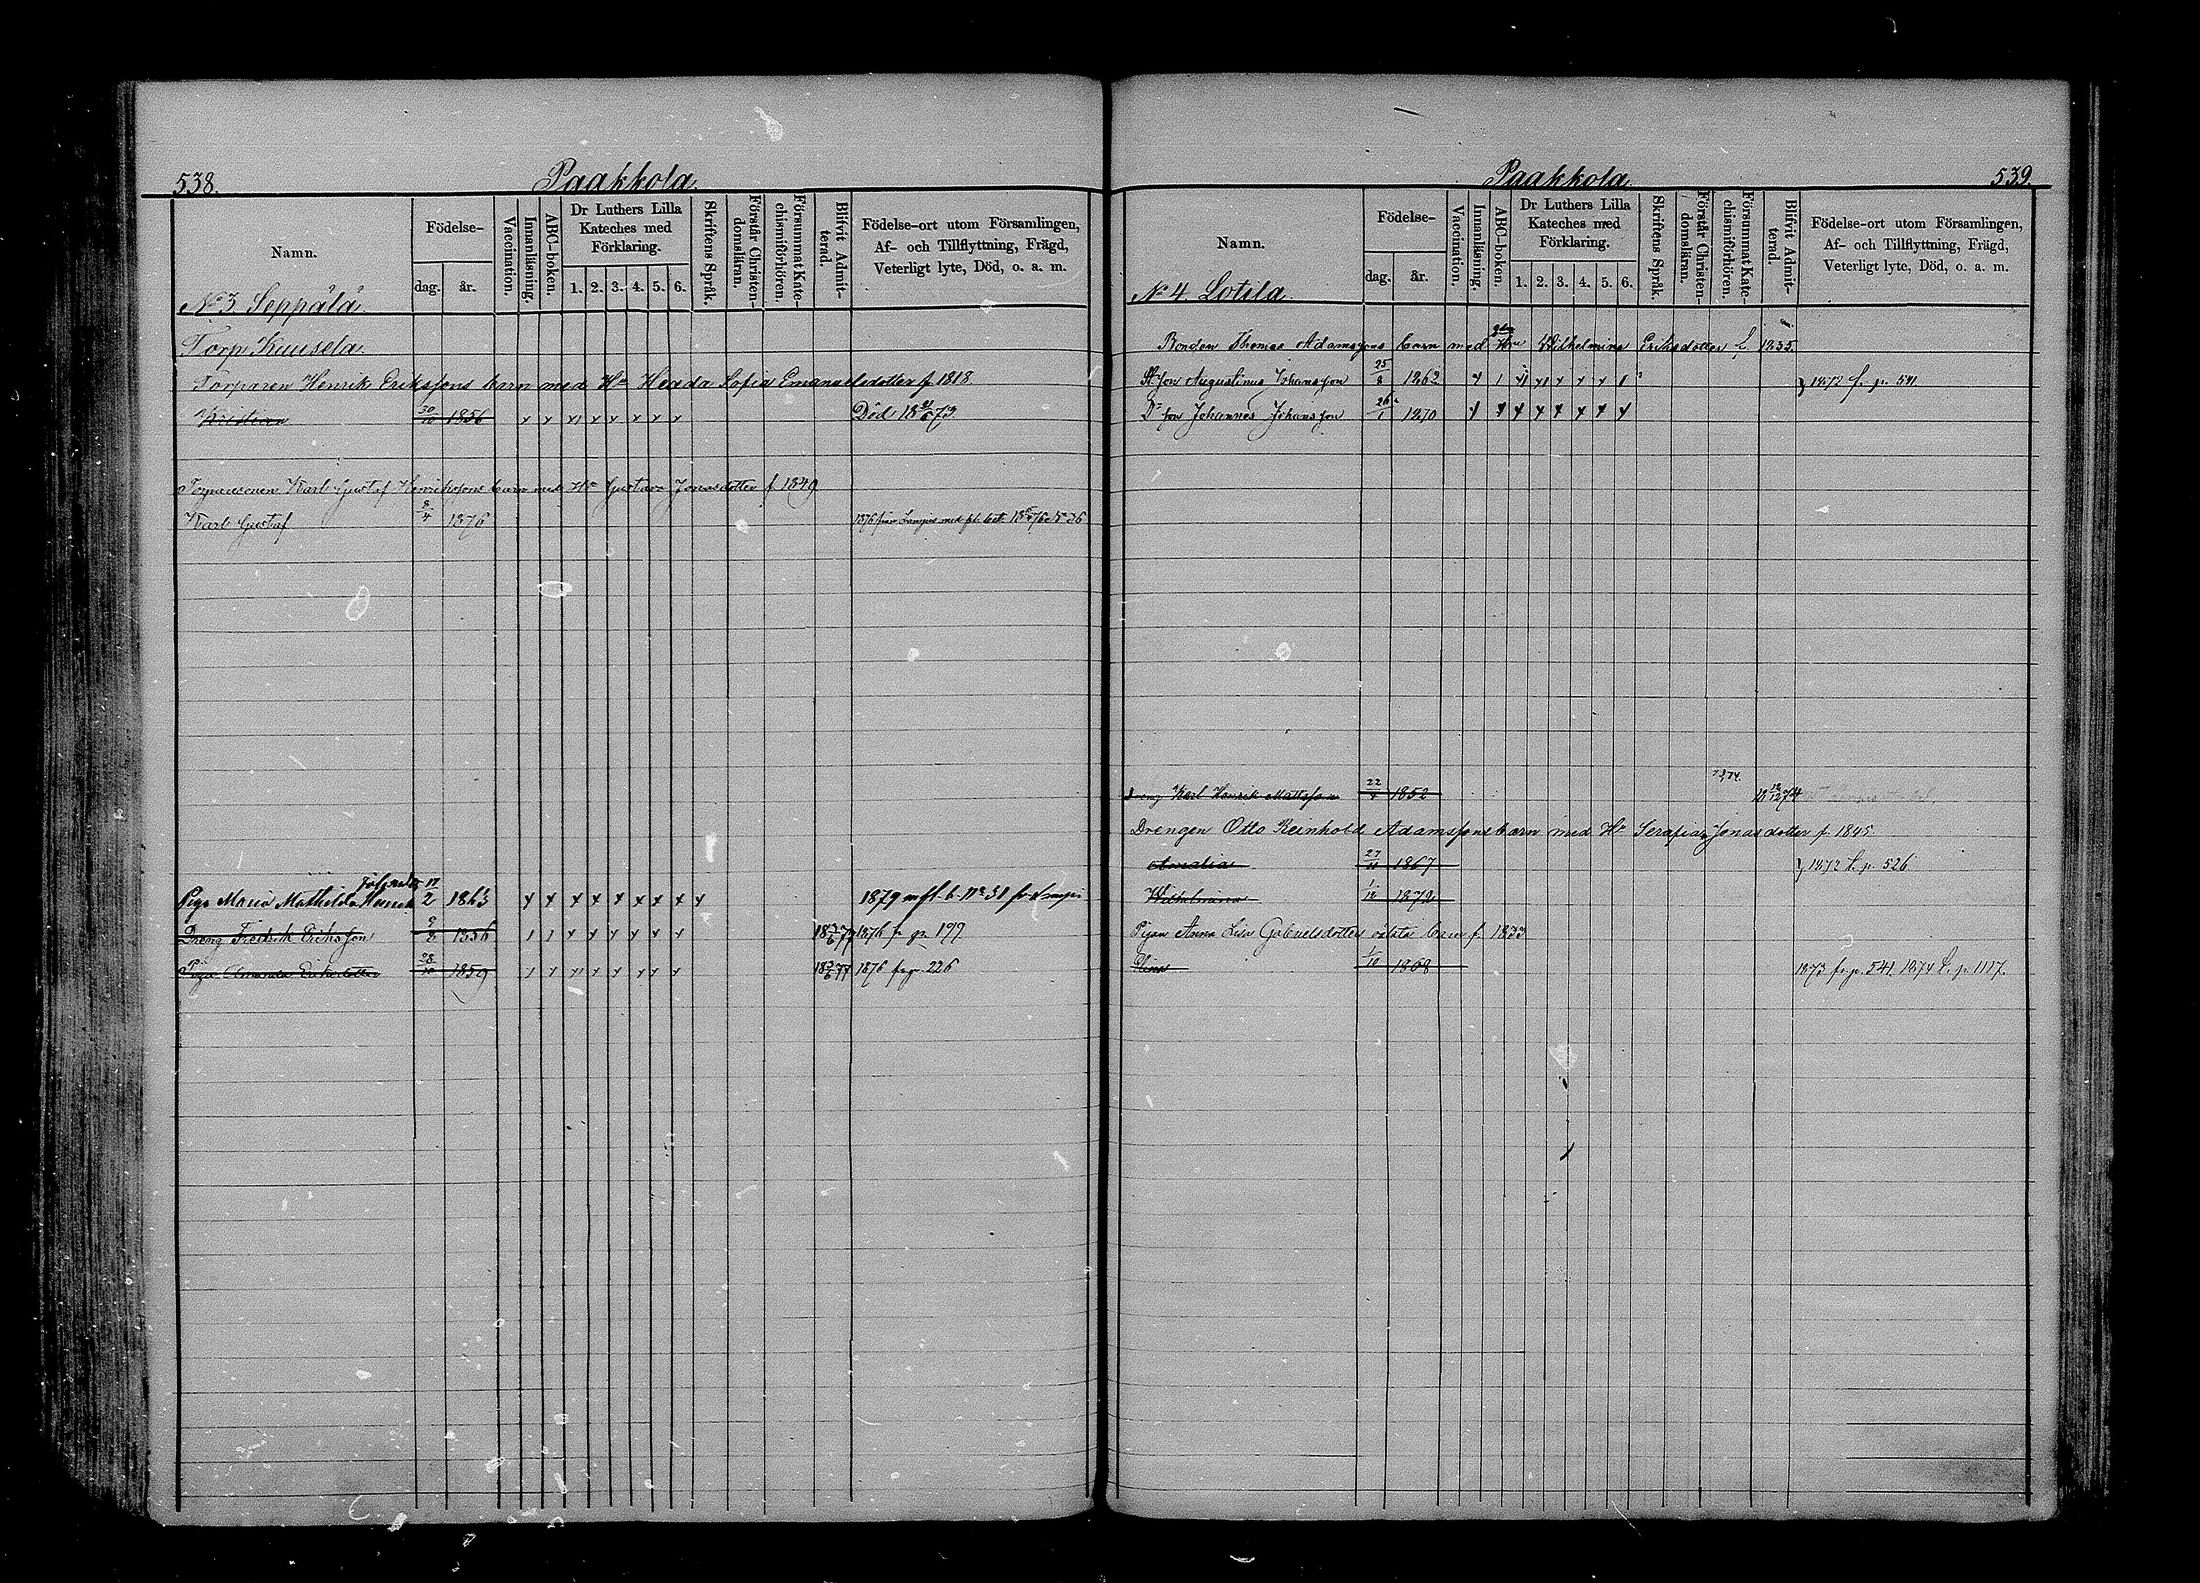 538. Paakkola
Namn. Födelse- dag. år. Vaccination. Innanläsning. ABC-boken. Dr Luthers Lilla Kateches med Förklaring. 1. 2. 3. 4. 5. 6. Skriftens Språk. Förstår Christendomsläran. Försummat Katechismiförhören. Blifvit Admitterad. Födelse-ort utom Församlingen, Af- och Tillflyttning, Frägd, Veterligt lyte, Död, o. a. m.
No 3 Seppälä
Torp Kuusela
Torparen Henrik Erikssons barn med Ha Hedda Sofia Emanuelsdotter f 1818
Kristian 30/10 1856 Död 18 73
Torparesonen Karl Gustaf Henrikssons barn med Ha Gustava Jonasdotter f 1849
Karl Gustaf 8/4 1876 1876 från med fl. bet. No 36
Piga Maria Mathilda 17/2 1863 1879 m fl. b. No 51 fr
Dreng Fredrik Eriksson 9/2 1856 1876 fr p. 199
Piga Amanda Eriksdotter 28/10 1859 18 3/6 77 1876 fr p. 226
Paakkola 539.
Namn. Födelse- dag. år. Vaccination. Innanläsning. ABC-boken. Dr Luthers Lilla Kateches med Förklaring. 1. 2. 3. 4. 5. 6. Skriftens Språk. Förstår Christendomsläran. Försummat Katechismiförhören. Blifvit Admitterad. Födelse-ort utom Församlingen, Af- och Tillflyttning, Frägd, Veterligt lyte, Död, o. a. m.
No 4 Lotila
Bonden Thomas Adamssons barn med Hu Wilhelmina Eriksdotter f. 1835.
St son Augustinus Johansson 25/8 1862 } 1872 f. p. 541
Do son Johannes Johansson 26/1 1870
Dreng Karl Henrik Mattsson 22/4 1852 18 12/12 74
Drengen Otto Reinhold Adamssons barn med Ha Serafia Jonasdotter f. 1845
Amalia 27/11 1867 } 1872 t. p. 526
Wilhelmina 1/12 1872
Pigan Anna Lisa Gabrielsdotters oäkta barn f. 1833
Elina 1/10 1868 1873 fr p. 541. 1874 t. p. 1117.